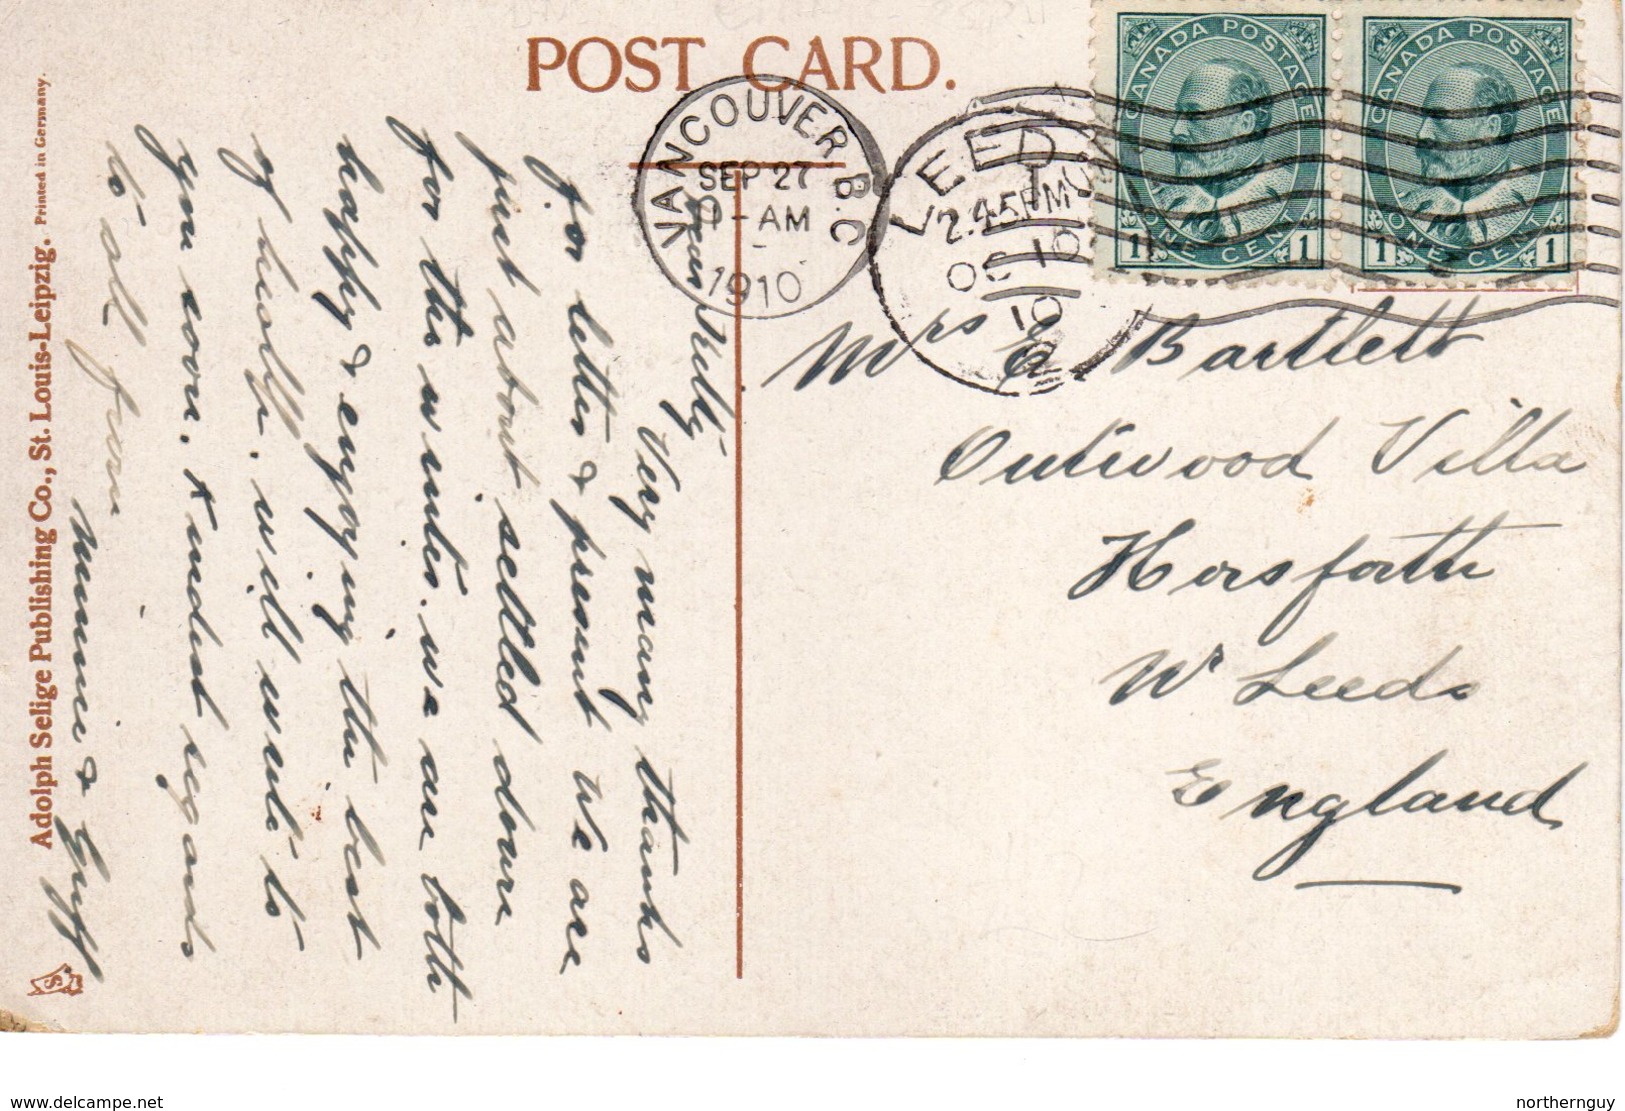 POST CARD.
CANADA POSTAGE
ONE CENT
1 1
CANADA POSTAGE
ONE CENT
1 1
VANCOUVER B.C.
SEP 27
AM
1910
LEEDS
2.45PM
OC 10
10
Mrs E Bartlett
Outwood Villa
Horsforth
Nr Leeds
England
Dear Nelly
Very many thanks
for letter & present we are
just about settled down
for the winter. we are both
happy & enjoying the best
of health. will write to
you soon. Kindest regards
to all from
Minnie &
Adolph Selige Publishing Co., St. Louis-Leipzig. Printed in Germany.
S
delcampe.net
northernguy